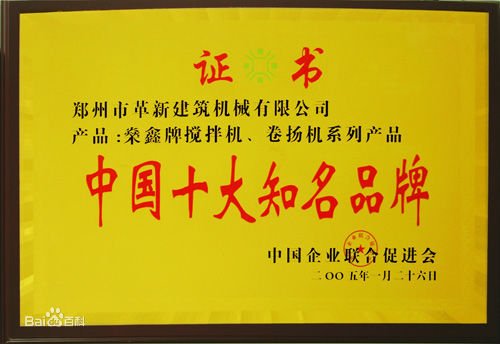 证书
郑州市革新建筑机械有限公司
产品:燊鑫牌搅拌机、卷扬机系列产品
中国十大知名品牌
中国企业联合促进会
二〇〇五年一月二十六日
Bai百科